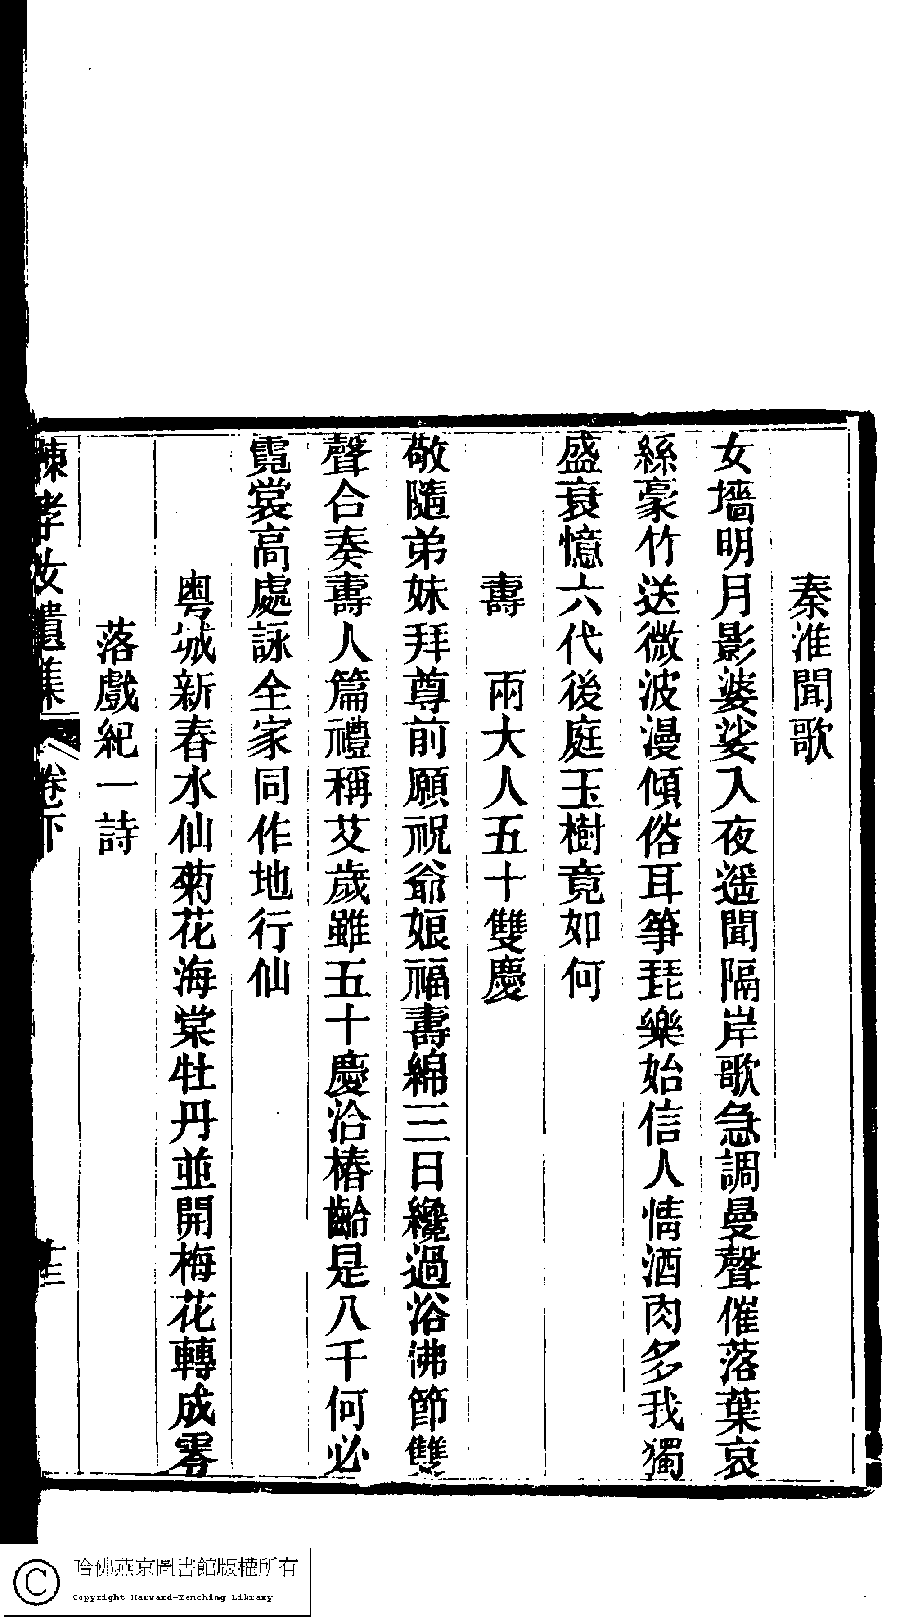 秦淮聞歌
女墻明月影婆娑入夜遥聞隔岸歌急調曼聲催落葉哀
絲豪竹送微波漫傾俗耳箏琵樂始信人情酒肉多我獨
盛衰憶六代後庭玉樹竟如何
壽　兩大人五十雙慶
敬隨弟妹拜尊前願祝爺娘福壽綿三日纔過浴佛節雙
聲合奏壽人篇禮稱艾歲雖五十慶洽椿齡是八千何必
霓裳高處詠全家同作地行仙
粤城新春水仙菊花海棠牡丹並開梅花轉成零
落戲紀一詩
陳孝女遺集
卷下
十三
哈佛燕京圖書館版權所有
Copyright Harvard-Yenching Library